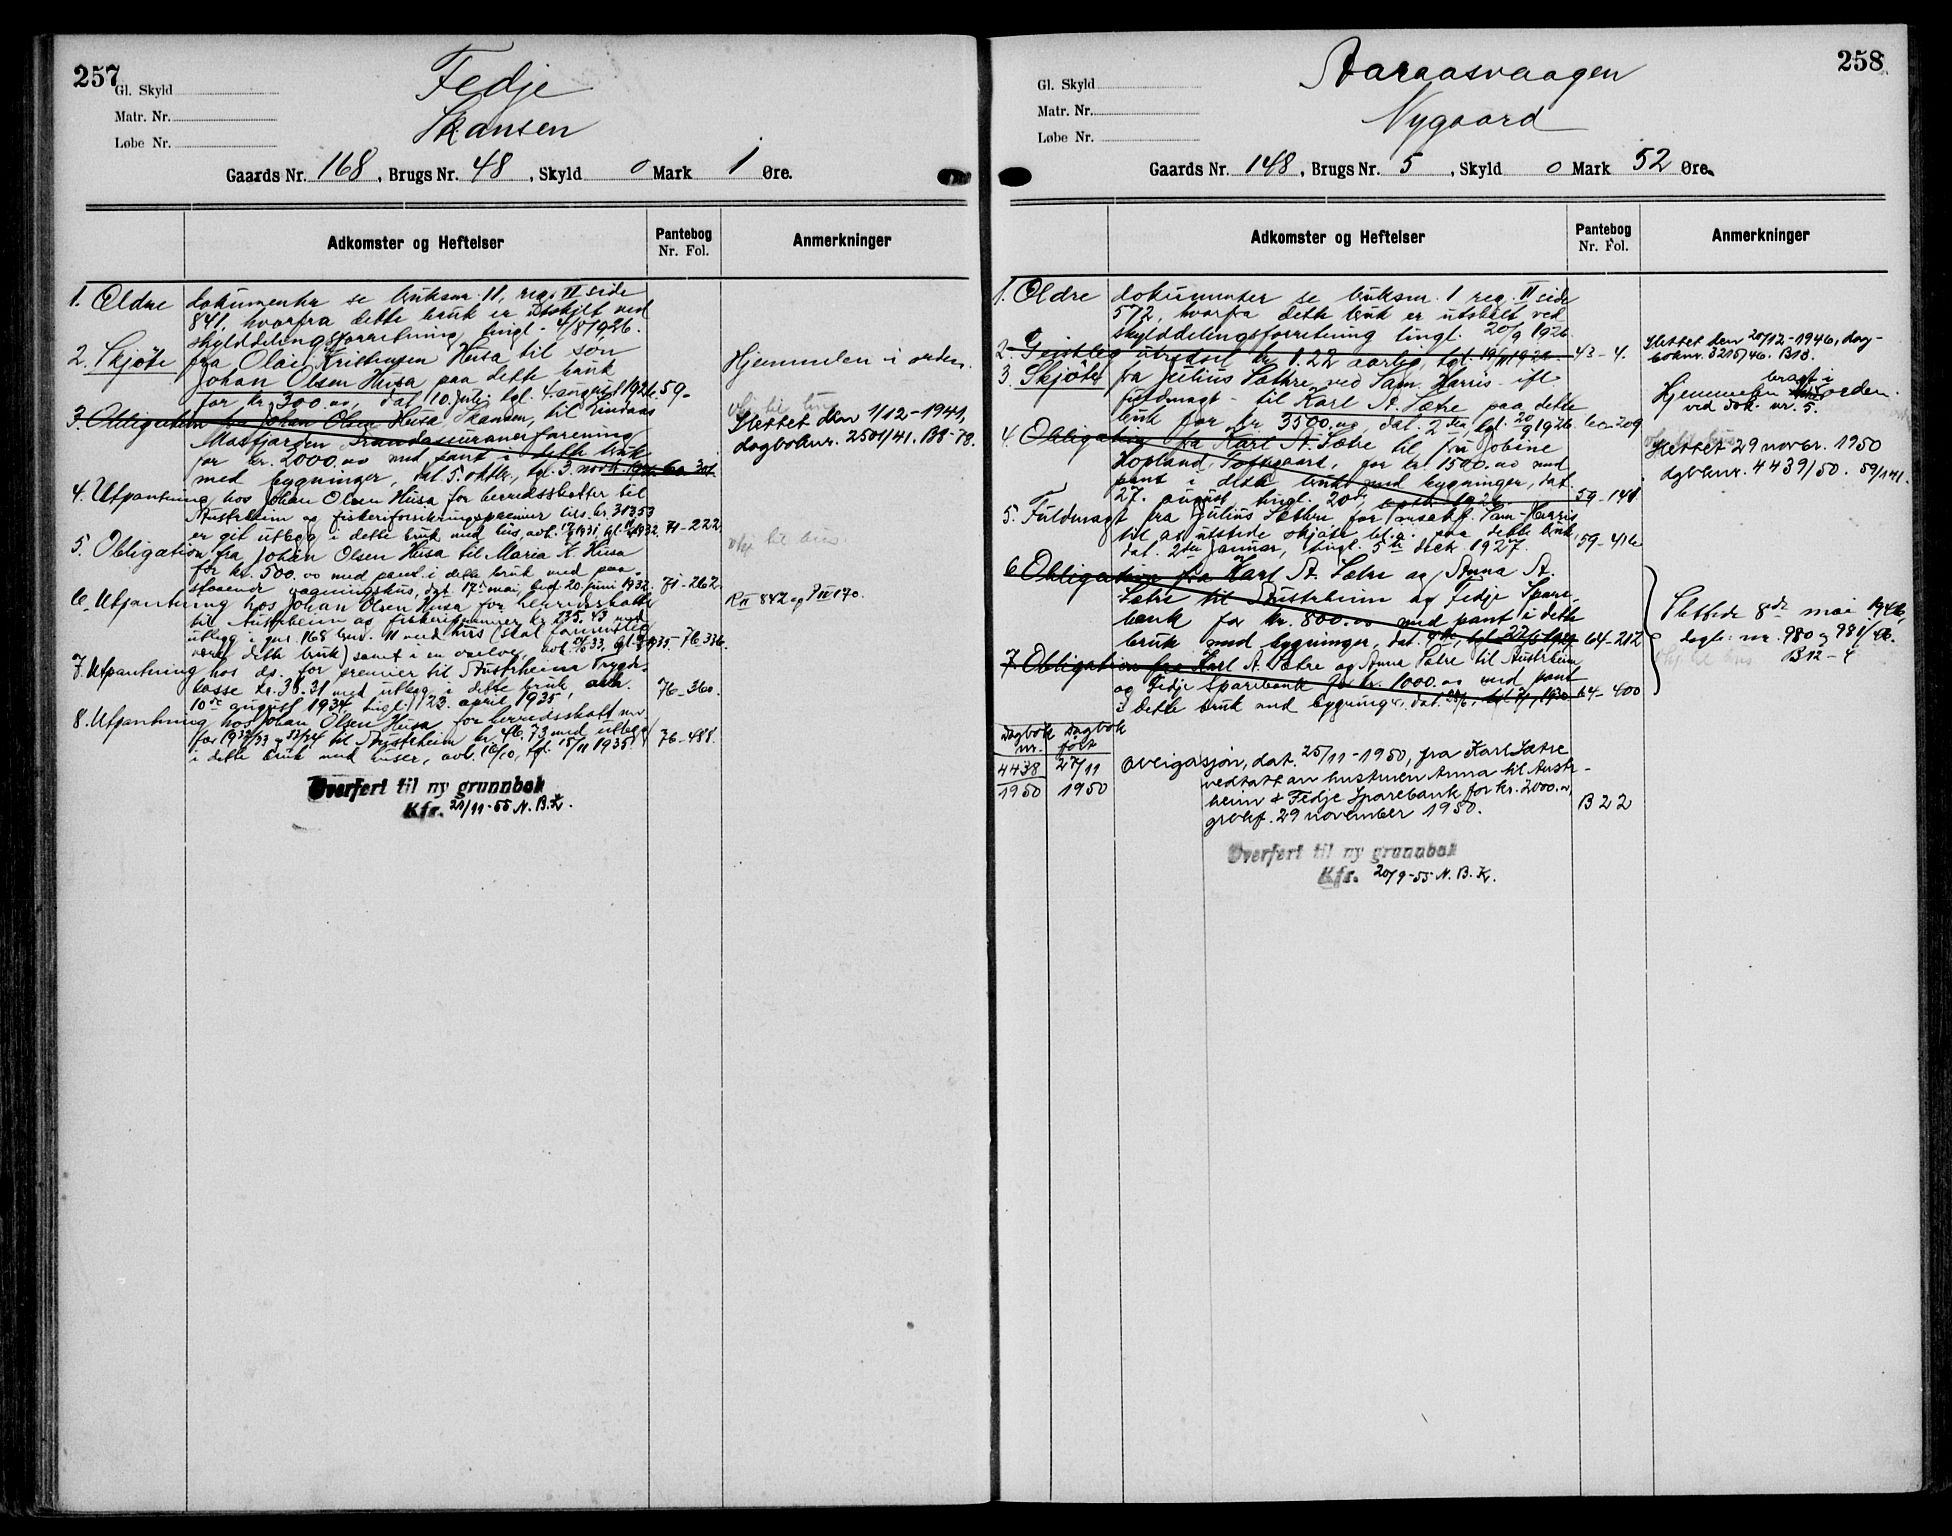 257
Fedje
Skansen
Gl. Skyld
Matr. Nr.
Løbe Nr.
Gaards Nr. 168, Brugs Nr. 48, Skyld 0 Mark 1 Øre.
Adkomster og Heftelser
Pantebog
Nr. Fol.
Anmerkninger
1. Ældre dokumenter se bruksnr. 11, reg. II side
841, hvorfra dette bruk er utskilt ved
skylddelingsforretning tingl. 4/8 1926.
2. Skjøte fra Olai Kristensen Husa til søn
Johan Olsen Husa paa dette bruk
for kr. 300.00, dat. 10. juli, tgl. 4. august 1926. 59-
Hjemmelen i orden.
3. Obligation fra Johan Olsen Husa, Skansen, til Lindaas
Masfjorden Brandassuranceforening
for kr. 2000.00 med pant i dette bruk
med bygninger, dat. 5. oktbr., tgl. 3. novbr.
Slettet den 1/12-1941,
dagboknr. 2501/41. B8-73.
4. Utpantning hos Johan Olsen Husa for herredsskatter til
Austrheim og fiskeriforsikringspremier tils. kr. 303.53
er git utlegg i dette bruk med hus, avt. 1931, tgl. 1932. 71-222
5. Obligation fra Johan Olsen Husa til Maria K. Husa
for kr. 500.00 med pant i dette bruk med paa-
staaende vaaningshus, dat. 17. mai, tgl. 20. juni 1932. 71-262
6. Utpantning hos Johan Olsen Husa for herredsskatter
til Austrheim og fiskeripremier kr. 135.43 med
utlegg i gnr. 168 bnr. 11 med hus (skal formentlig
være dette bruk) samt i en 1935-76-336.
R II 842 og P III 170.
7. Utpantning hos ds. for premier til Austrheim Trygde-
kasse kr. 38.31 med utlegg i dette bruk,
10de august 1934, tingl. 23. april 1935 76-360.
8. Utpantning hos Johan Olsen Husa for herredsskatt m.v.
for 1932/33 og 33/34 til Austrheim kr. 46.73 med utlegg
i dette bruk med huser, avt. 10/10, tgl. 15/11 1935. 76-488.
Overført til ny grunnbok
Kfr. 21/11-55 N.B.K.
258
Aaraasvaagen
Nygaard
Gl. Skyld
Matr. Nr.
Løbe Nr.
Gaards Nr. 148, Brugs Nr. 5, Skyld 0 Mark 52 Øre.
Adkomster og Heftelser
Pantebog
Nr. Fol.
Anmerkninger
1. Ældre dokumenter se bruksnr. 1 reg. III side
572, hvorfra dette bruk er utskilt ved
skylddelingsforretning tingl. 20/9 1926
2. Geistleg utredsel kr. 1.22 aarlig, tgl. 43-4.
Slettet den 20/12-1946, dag-
boknr. 3215/46. B13.
3. Skjøte fra Julius Sæthre ved Sam. Harris ifl.
fuldmagt - til Karl A. Sætre paa dette
bruk for kr. 3500.00, dat. 2den, tgl. 20/9 1926. 60-209
Hjemmelen bragt i orden.
ved dok. nr. 5.
4. Obligation fra Karl A. Sætre til fru Jobine
Hopland, Toftegaard, for kr. 1500.00 med
pant i dette bruk med bygninger, dat.
27. august, tingl. 20de septbr. 1926. 59-141
Slettet 29 novbr. 1950
dagboknr. 4439/50. 59/141.
5. Fuldmagt fra Julius Sæthre for Sam. Harris
til at utstede skjøte bl.a. paa dette bruk,
dat. 2den januar, tingl. 5te decb. 1927. 59-416
6. Obligation fra Karl A. Sætre og Anna A.
Sætre til Austrheim og Fedje Spare-
bank for kr. 800.00 med pant i dette
bruk med bygninger, dat. 64-212
7. Obligation fra Karl A. Sætre og Anna Sætre til Austrheim
og Fedje Sparebank for kr. 1000.00 med pant
i dette bruk med bygninger, dat. 64-400
Slettede 8de mai 1946,
dagb. nr. 980 og 981/46.
B12-4
Dagbok nr. Dagbok ført
4438 27/11
1950 1950
Obligasjon, dat. 25/11-1950, fra Karl Sætre
vedtatt av hustruen Anna til Austr-
heim & Fedje Sparebank for kr. 2000.00
29 november 1950. B 22
Overført til ny grunnbok
Kfr. 20/9-55 N.B.K.